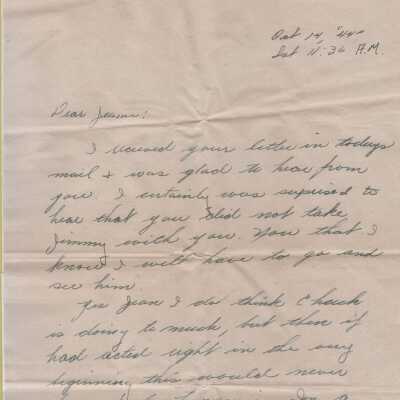 Oct 14, "44"
Sat 11:36 A.M.
Dear Jeann:
I received your letter in todays
mail + was glad to hear from
you. I certainly was suprised to
hear that you did not take
Jimmy with you. Now that I
know I will have to go and
see him.
Yes Jean I do think Chuck
is doing to much, but then if
had acted right in the very
beginning this would never